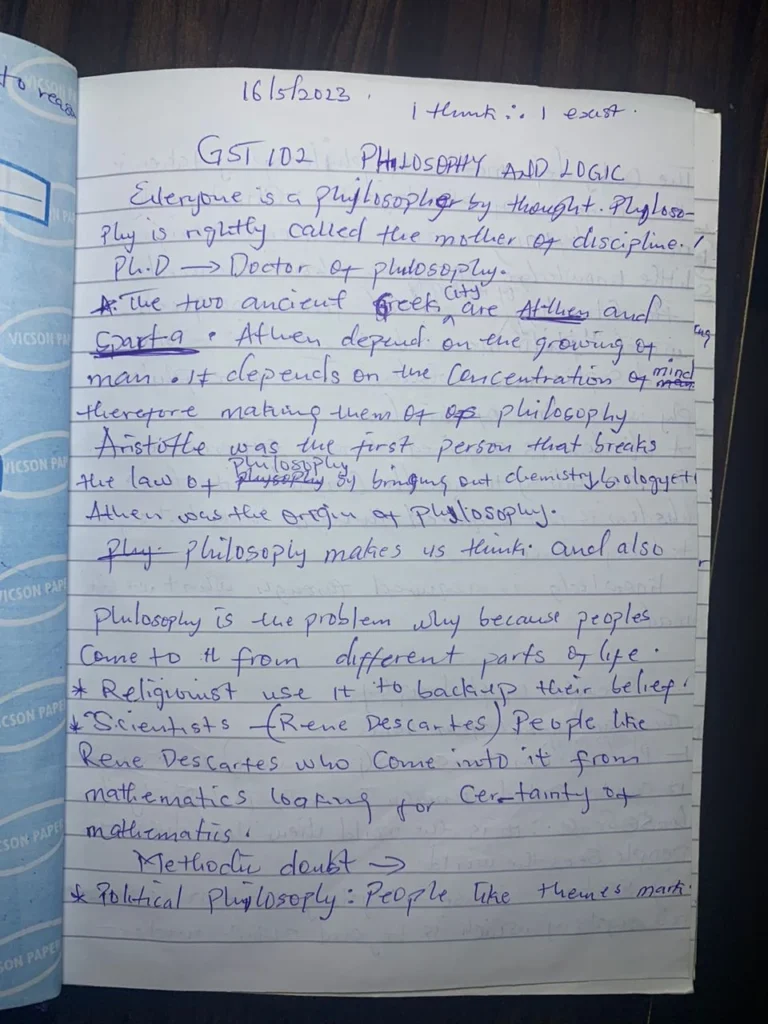 to reason
16/5/2023.
I think ∴ I exist.
GST 102 PHILOSOPHY AND LOGIC
Everyone is a phylosopher by thought. Phyloso-
phy is rightly called the mother of discipline.
Ph.D → Doctor of philosophy.
The two ancient Greek city are Athen and
Sparta. Athen depend on the growing of
man. It depends on the Concentration of mind
therefore making them of philosophy
Aristothe was the first person that breaks
the law of philosophy by bringing out chemistry, biology
Athen was the origin of phylosophy.
Phy. philosophy makes us think. and also
philosophy is the problem why because peoples
Come to it from different parts of life.
* Religionist use it to backup their belief.
* Scientists – (Rene Descartes) People like
Rene Descartes who Come into it from
mathematics looking for Certainty of
mathematics.
Methodic doubt →
* Political philosophy: People like themes mark.
VICSON PAPE
VICSON PAPE
VICSON PAPE
VICSON PAPE
CSON PAPE
SON PAPE
SON PAPE